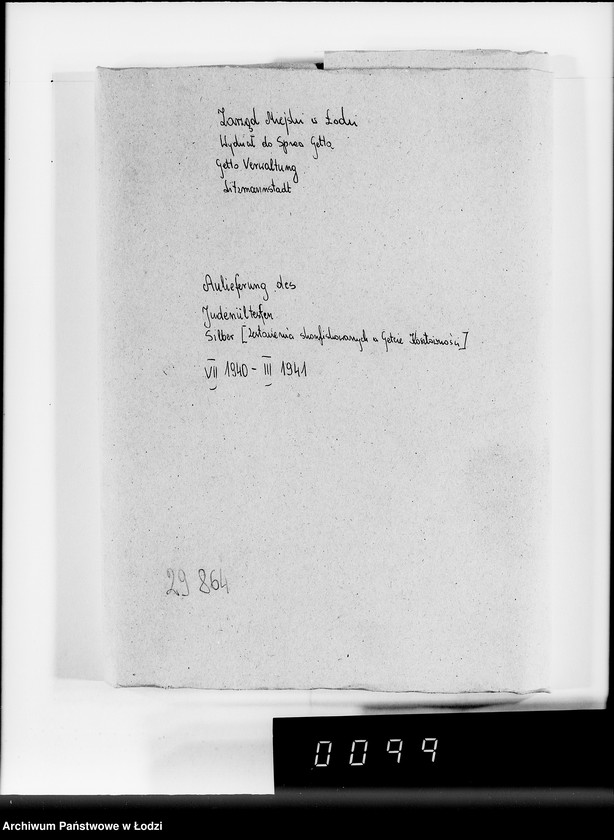 Zarząd Miejski w Łodzi
Wydział do Spraw Getta
Getto Verwaltung
Litzmannstadt
Aulieferung des
Judenältesten
Silber [zestawienia skonfiskowanych w Getcie kosztowności]
VII 1940 - III 1941
29 864
0099
Archiwum Państwowe w Łodzi